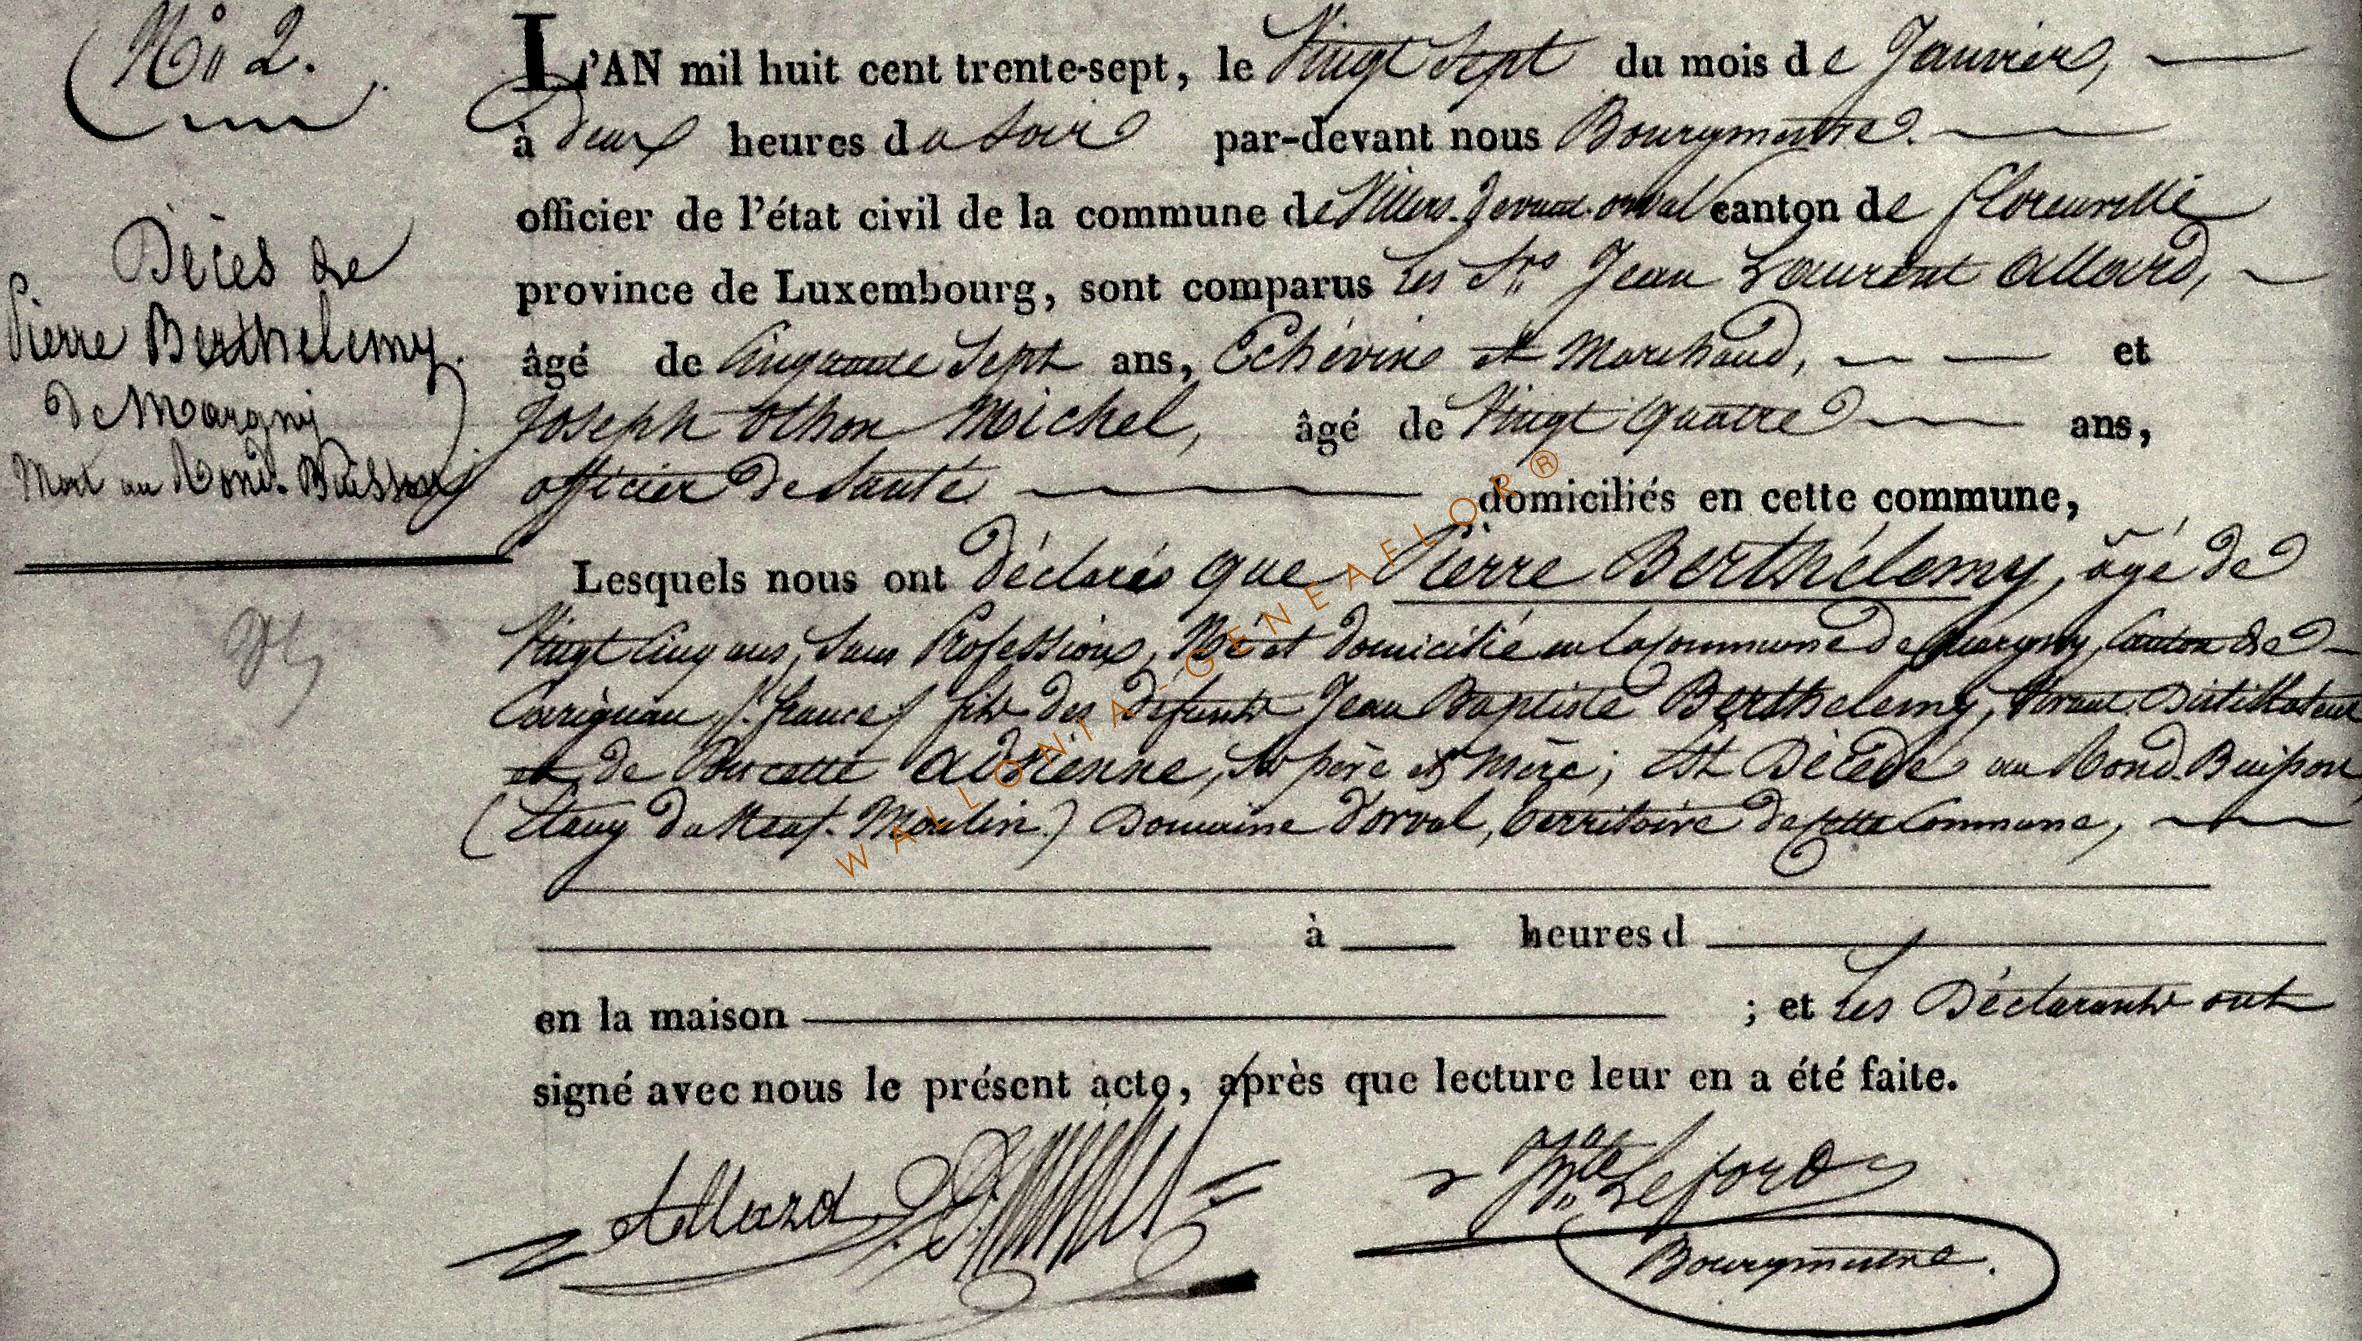 N° 2.
Décès de
Pierre Berthelemy.
de Margny
Mort au Rond-Buisson
L'AN mil huit cent trente-sept, le Vingt Sept du mois de Janvier,
à deux heures du Soir par-devant nous Bourgmestre.
officier de l'état civil de la commune de Villers-devant-orval canton de florenville
province de Luxembourg, sont comparus Les Srs Jean Laurent Allard,
âgé de Cinquante Sept ans, Echévin et Marchand, et
Joseph Othon Michel, âgé de Vingt quatre ans,
officier de Santé domiciliés en cette commune,
Lesquels nous ont déclarés que Pierre Berthélemy, âgé de
Vingt Cinq ans, Sans Profession, Né et domicilié en la Commune de Margny, Canton de
Carignan, (france) fils des défunts Jean Baptiste Berthelemy, vivant Distillateur
et de adrienne, Ses père et Mère; Est Décédé au Rond-Buisson
(Etang du Neuf-Moulin) Domaine d'orval, territoire de cette Commune,
à heures d
en la maison ; et Les Déclarants ont
signé avec nous le présent acte, après que lecture leur en a été faite.
Allard
Bourgmestre.
WALLONIA-GENEAFLOR®